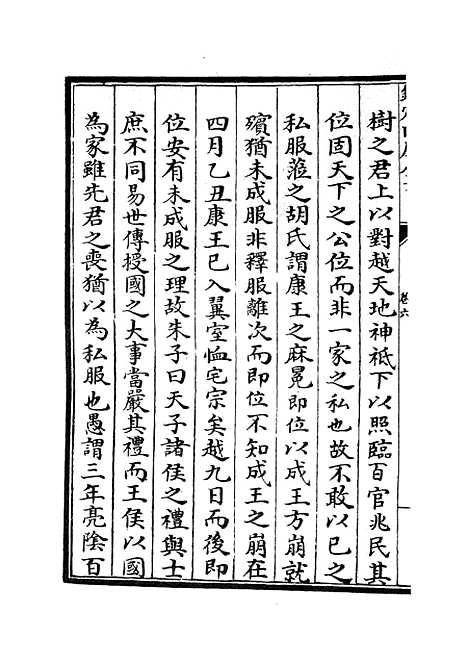 樹之君上以對越天地神祇下以照臨百官兆民其
位固天下之公位而非一家之私也故不敢以已之
私服蒞之胡氏謂康王之麻冕即位以成王方崩就
殯猶未成服非釋服離次而即位不知成王之崩在
四月乙丑康王已入翼室恤宅宗矣越九日而後即
位安有未成服之理故朱子曰天子諸侯之禮與士
庶不同易世傳授國之大事當嚴其禮而王侯以國
為家雖先君之喪猶以為私服也愚謂三年亮陰百
卷六